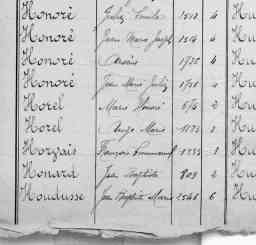 Honoré Jules Emile 4 Hu
Honoré Jean Marie Joseph 4 Hu
Honoré 1735 4 Hu
Honoré Jean Marie Julien 4 Hu
Horel Marie Honoré 2 Hu
Horel Ange Marie 1173 Hu
Horvais François Emmanuel 1233 1 Hu
Houard Jean Baptiste 809 2 Hu
Houdusse Jean Baptiste Marie 2546 6 Hu